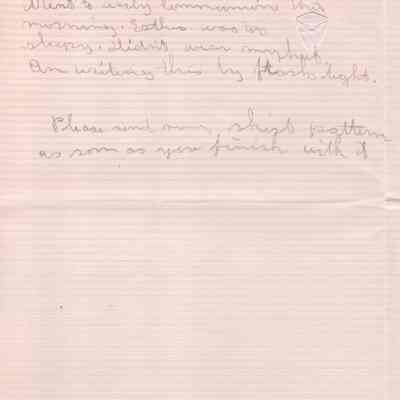 Went to early Communion this
morning. Esther was so
sleepy. Didn't wear my hat.
Am writing this by flash light.
Please send my skirt pattern
as soon as your finish with it